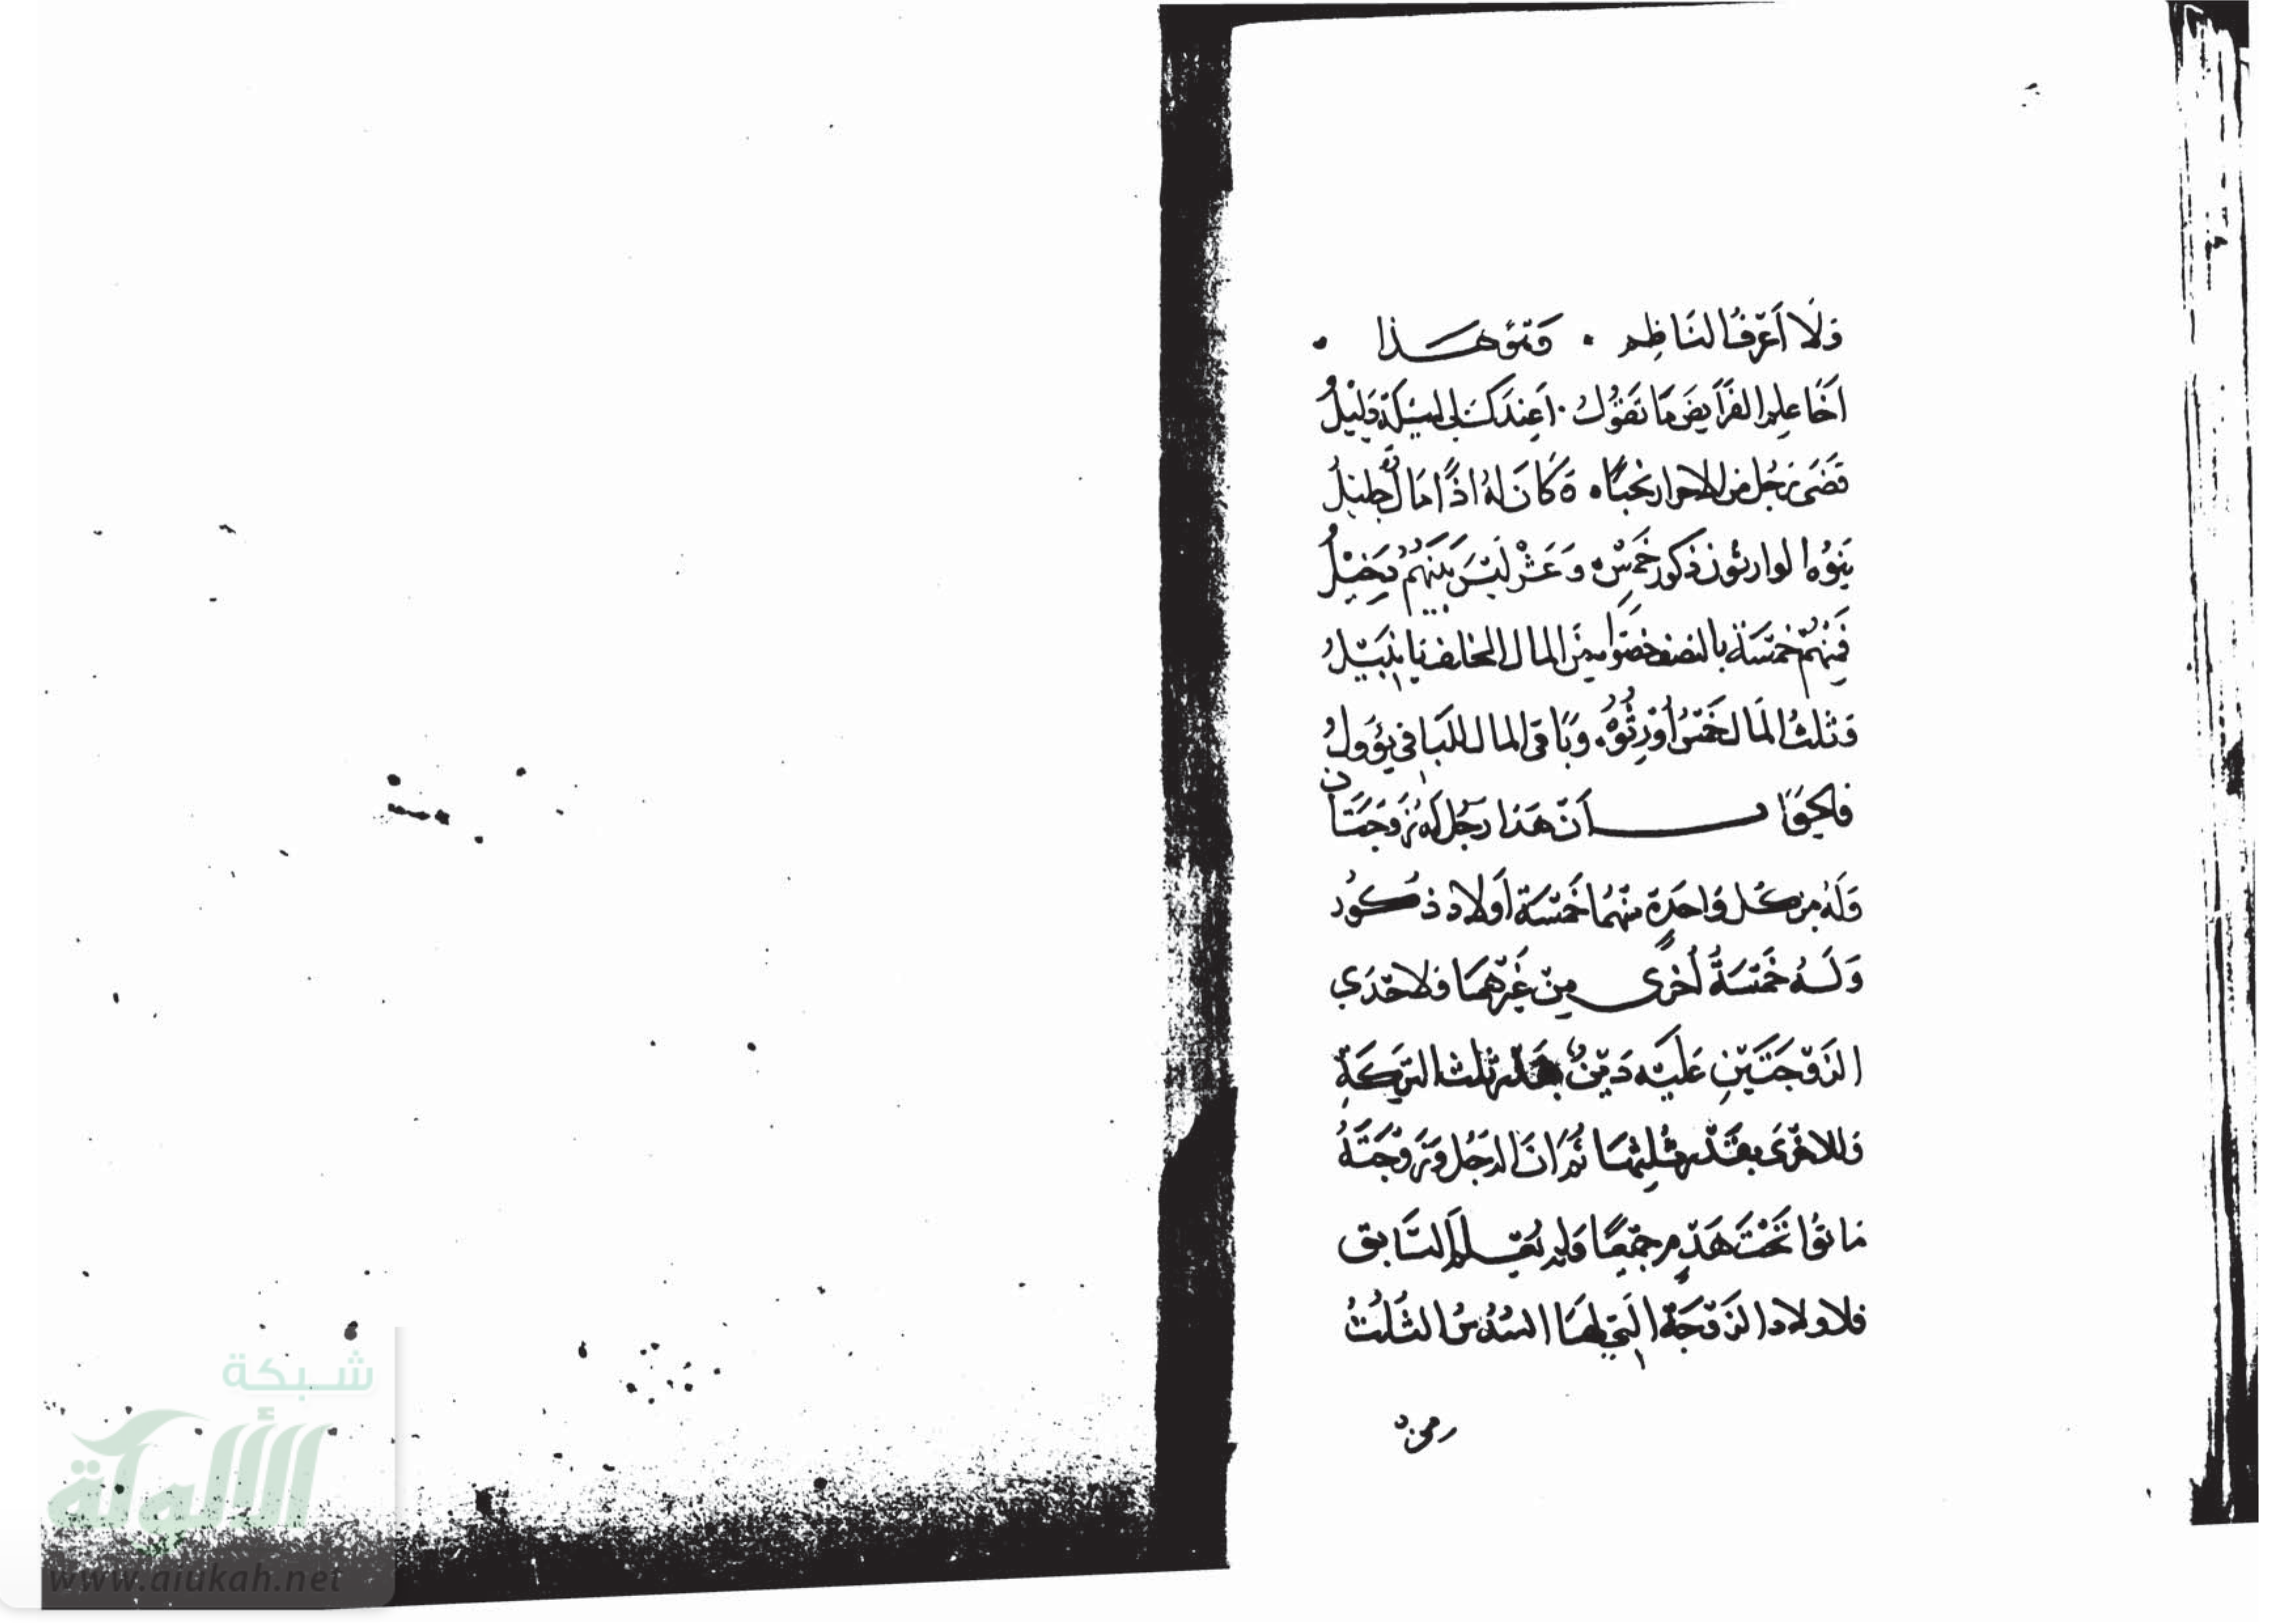 وَلَا أَعْرِفُ النَّاظِمَ . وَهُوَ هَذَا .
أَخَا عِلْمِ الفَرَايِضِ مَا تَقُولُ . أَعِنْدَكَ لِي لِمَسْئَلَةٍ دَلِيلُ
قَضَى رَجُلٌ مِنَ الاحرار نَحْبًا . وَكَانَ لَهُ اذًا مَالٌ جَلِيلُ
بَنُوهُ الوارثُون ذكور خَمْسٍ . وَعَشْرٍ لَيْسَ بَيْنَهُمْ دَخِيلُ
فَمِنْهُمْ خَمْسَةٌ بالنصف خُصُّوا مِنَ المال المخلف يَا نَبِيلُ
وَثُلثُ المَال لخَمْسٍ أُورِثُوهُ . وَبَاقي المال للبَاقي يَؤُولُ
فالجَوَاب أَنَّ هَذَا رَجُلٌ لَهُ زَوْجَتَانِ
وَلَهُ مِنْ كُلِّ وَاحِدَةٍ مِنْهُمَا خَمْسَةُ أَوْلَادٍ ذُكُورٍ
وَلَهُ خَمْسَةٌ أُخْرَى مِنْ غَيْرِهِمَا فَلِاحْدَي
الزَوْجَتَيْنِ عَلَيْهِ دَيْنٌ بقدر ثلث التَرِكَةِ
وَللاخْرَى بِقَدْرِ ثُلُثِهَا ثُمَّ انَّ الرَجُلَ وَزَوْجَتَهُ
مَاتُوا تَحْتَ هَدْمٍ جَمِيعًا وَلَم يُعْلَمِ السَّابِقُ
فلاولاد الزَوْجَةِ الَّتِي لهَا السُدُسُ الثُلُثُ